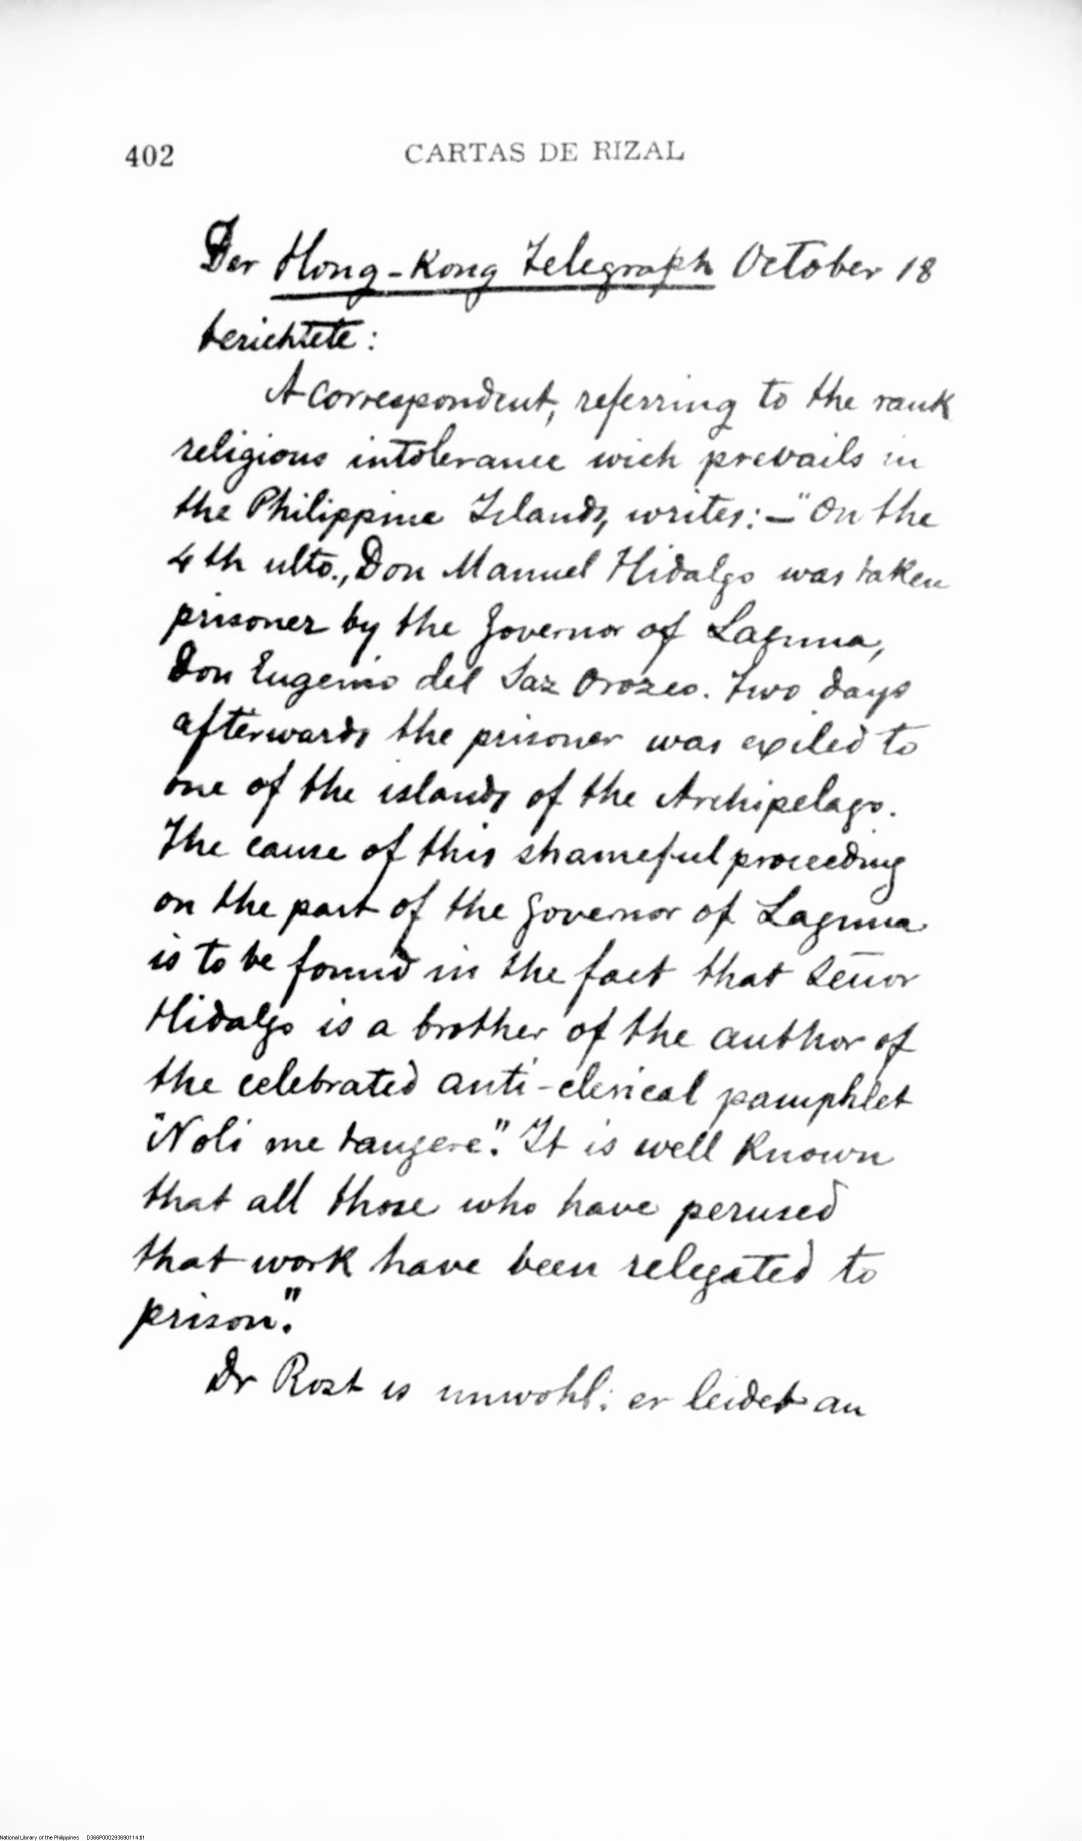 402 CARTAS DE RIZAL
Der Hong-Kong Telegraph October 18
berichtete:
A correspondent, referring to the rank
religious intolerance wich prevails in
the Philippine Islands, writes:—"On the
4th ulto., Don Manuel Hidalgo was taken
prisoner by the Governor of Laguna,
Don Eugenio del Saz Orozco. Two days
afterwards the prisoner was exiled to
one of the islands of the Archipelago.
The cause of this shameful proceeding
on the part of the Governor of Laguna
is to be found in the fact that Señor
Hidalgo is a brother of the author of
the celebrated anti-clerical pamphlet
"Noli me tangere". It is well known
that all those who have perused
that work have been relegated to
prison."
Dr Rost is unwohl: er leidet an
National Library of the Philippines